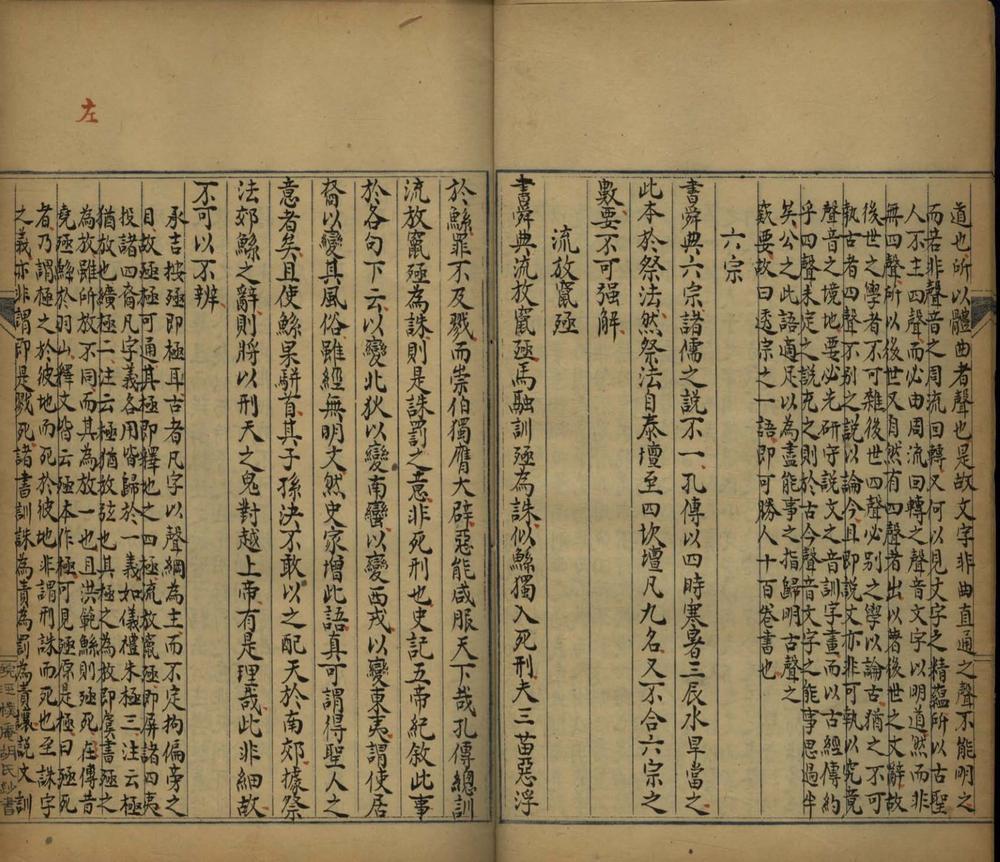 道也所以體曲者聲也是故文字非曲直通之聲不能明之
而若非聲音之周流回轉又何以見文字之精蘊所以古聖
人不主四聲而必由周流回轉之聲音文字以明道然而非
無四聲所以後世又自然有四聲者出以著後世之文辭故
後世之學者不可雜後世四聲必別之學以論古猶之不可
執古者四聲不別之說以論今且即說文亦非可執以究竟
聲音之境地要必先研守說文之音訓字畫而以古經傳約
乎四聲未定之之說充之則於古今聲音文字之能事思過半
矣公之此語適足以為盡能事之指歸明古聲之
竅要故曰透宗之一語即可勝人十百卷書也
六宗
書舜典六宗諸儒之說不一孔傳以四時寒暑三辰水旱當之
此本於祭法然祭法自泰壇至四坎壇凡九名又不合六宗之
數要不可强解
流放竄殛
書舜典流放竄殛馬融訓殛為誅似鯀獨入死刑夫三苗惡浮
於鯀罪不及戮而崇伯獨膺大辟惡能咸服天下哉孔傳總訓
流放竄殛為誅則是誅罰之意非死刑也史記五帝紀敘此事
於各句下云以變北狄以變南蠻以變西戎以變東夷謂使居
裔以變其風俗雖經無明文然史家增此語真可謂得聖人之
意者矣且使鯀果駢首其子孫決不敢以之配天於南郊據祭
法郊鯀之辭則將以刑天之鬼對越上帝有是理哉此非細故
不可以不辨
承吉按殛即極耳古者凡字以聲綱為主而不定拘偏旁之
目故殛極可通其極即釋也之四極流放竄殛即屏諸四夷
投諸四裔凡字義各用皆歸於一義如儀禮朱極三注云極
猶放也續極二注云極猶放弦也其極之為放即虞書殛之
為放雖所放不同而其為放一也且洪範鯀則殛死在傳昔
堯殛鯀於羽山釋文皆云殛本作極可見殛原是極曰殛死
者乃謂極之於彼地而死於彼地非謂刑誅而死也至誅字
之義亦非謂即是戮死諸書訓誅為責為罰為責讓說文訓
左
胡氏鈔書